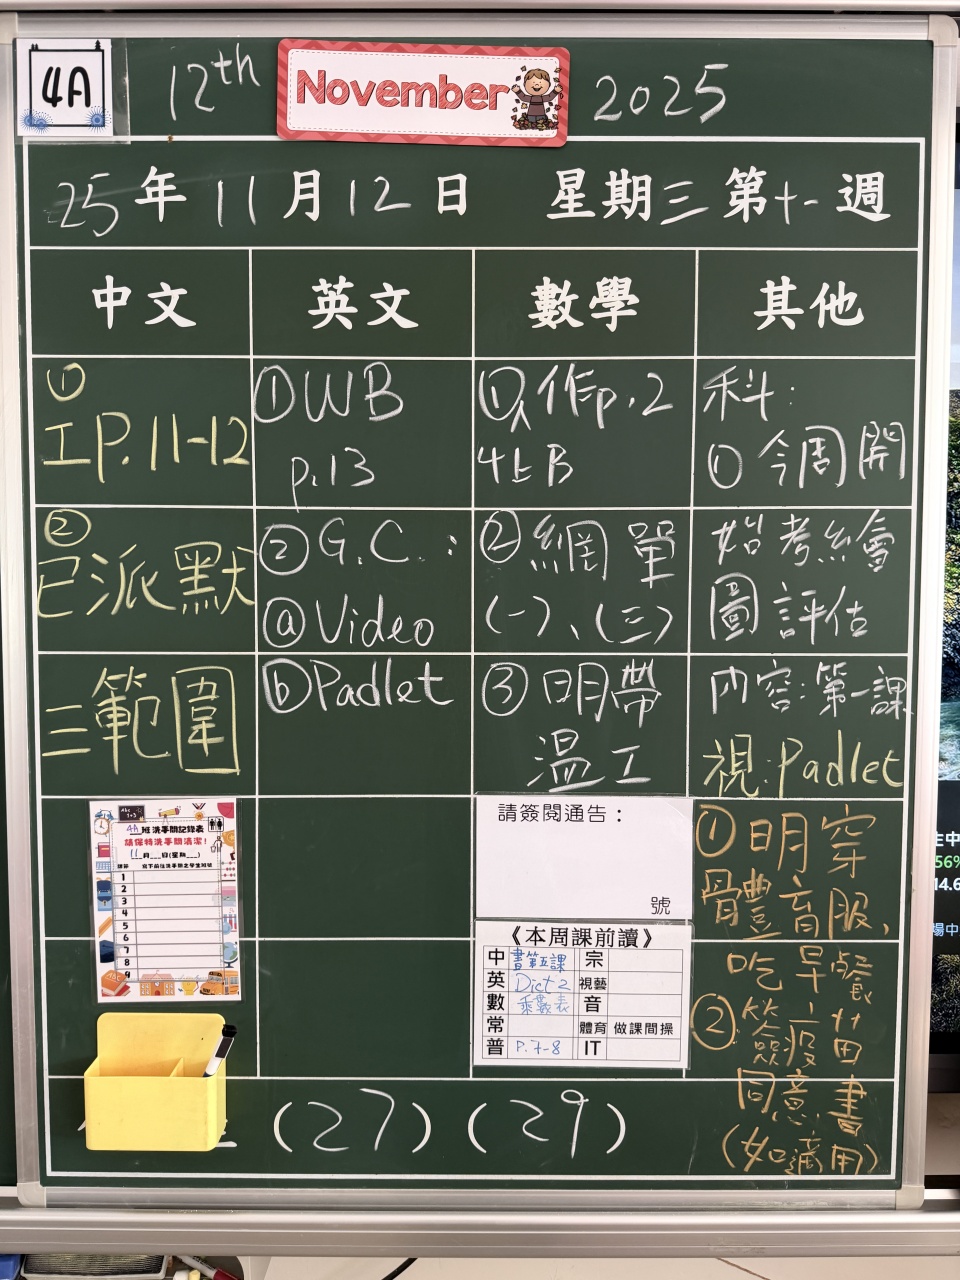 4A
12th November 2025
25年11月12日 星期三第十一週
中文
英文
數學
其他
①
工P.11-12
②
已派默
三範圍
①WB
p.13
②G.C.:
ⓐVideo
ⓑPadlet
①作p.2
4上B
②網單
(一)、(三)
③明帶
溫工
科:
①今周開
始考繪
圖評估
內容:第一課
視:Padlet
①明穿
體育服,
吃早餐
②簽疫苗
同意書
(如適用)
4A班洗手間記錄表
請保持洗手間清潔!
11月__日(星期__)
寫下前往洗手間之學生班號
1
2
3
4
5
6
7
8
9
請簽閱通告:
號
《本周課前讀》
中 書第五課 宗
英 Dict 2 視藝
數 乘數表 音
常 體育 做課間操
普 P.7-8 IT
(27)(29)
56%
14.6
場中